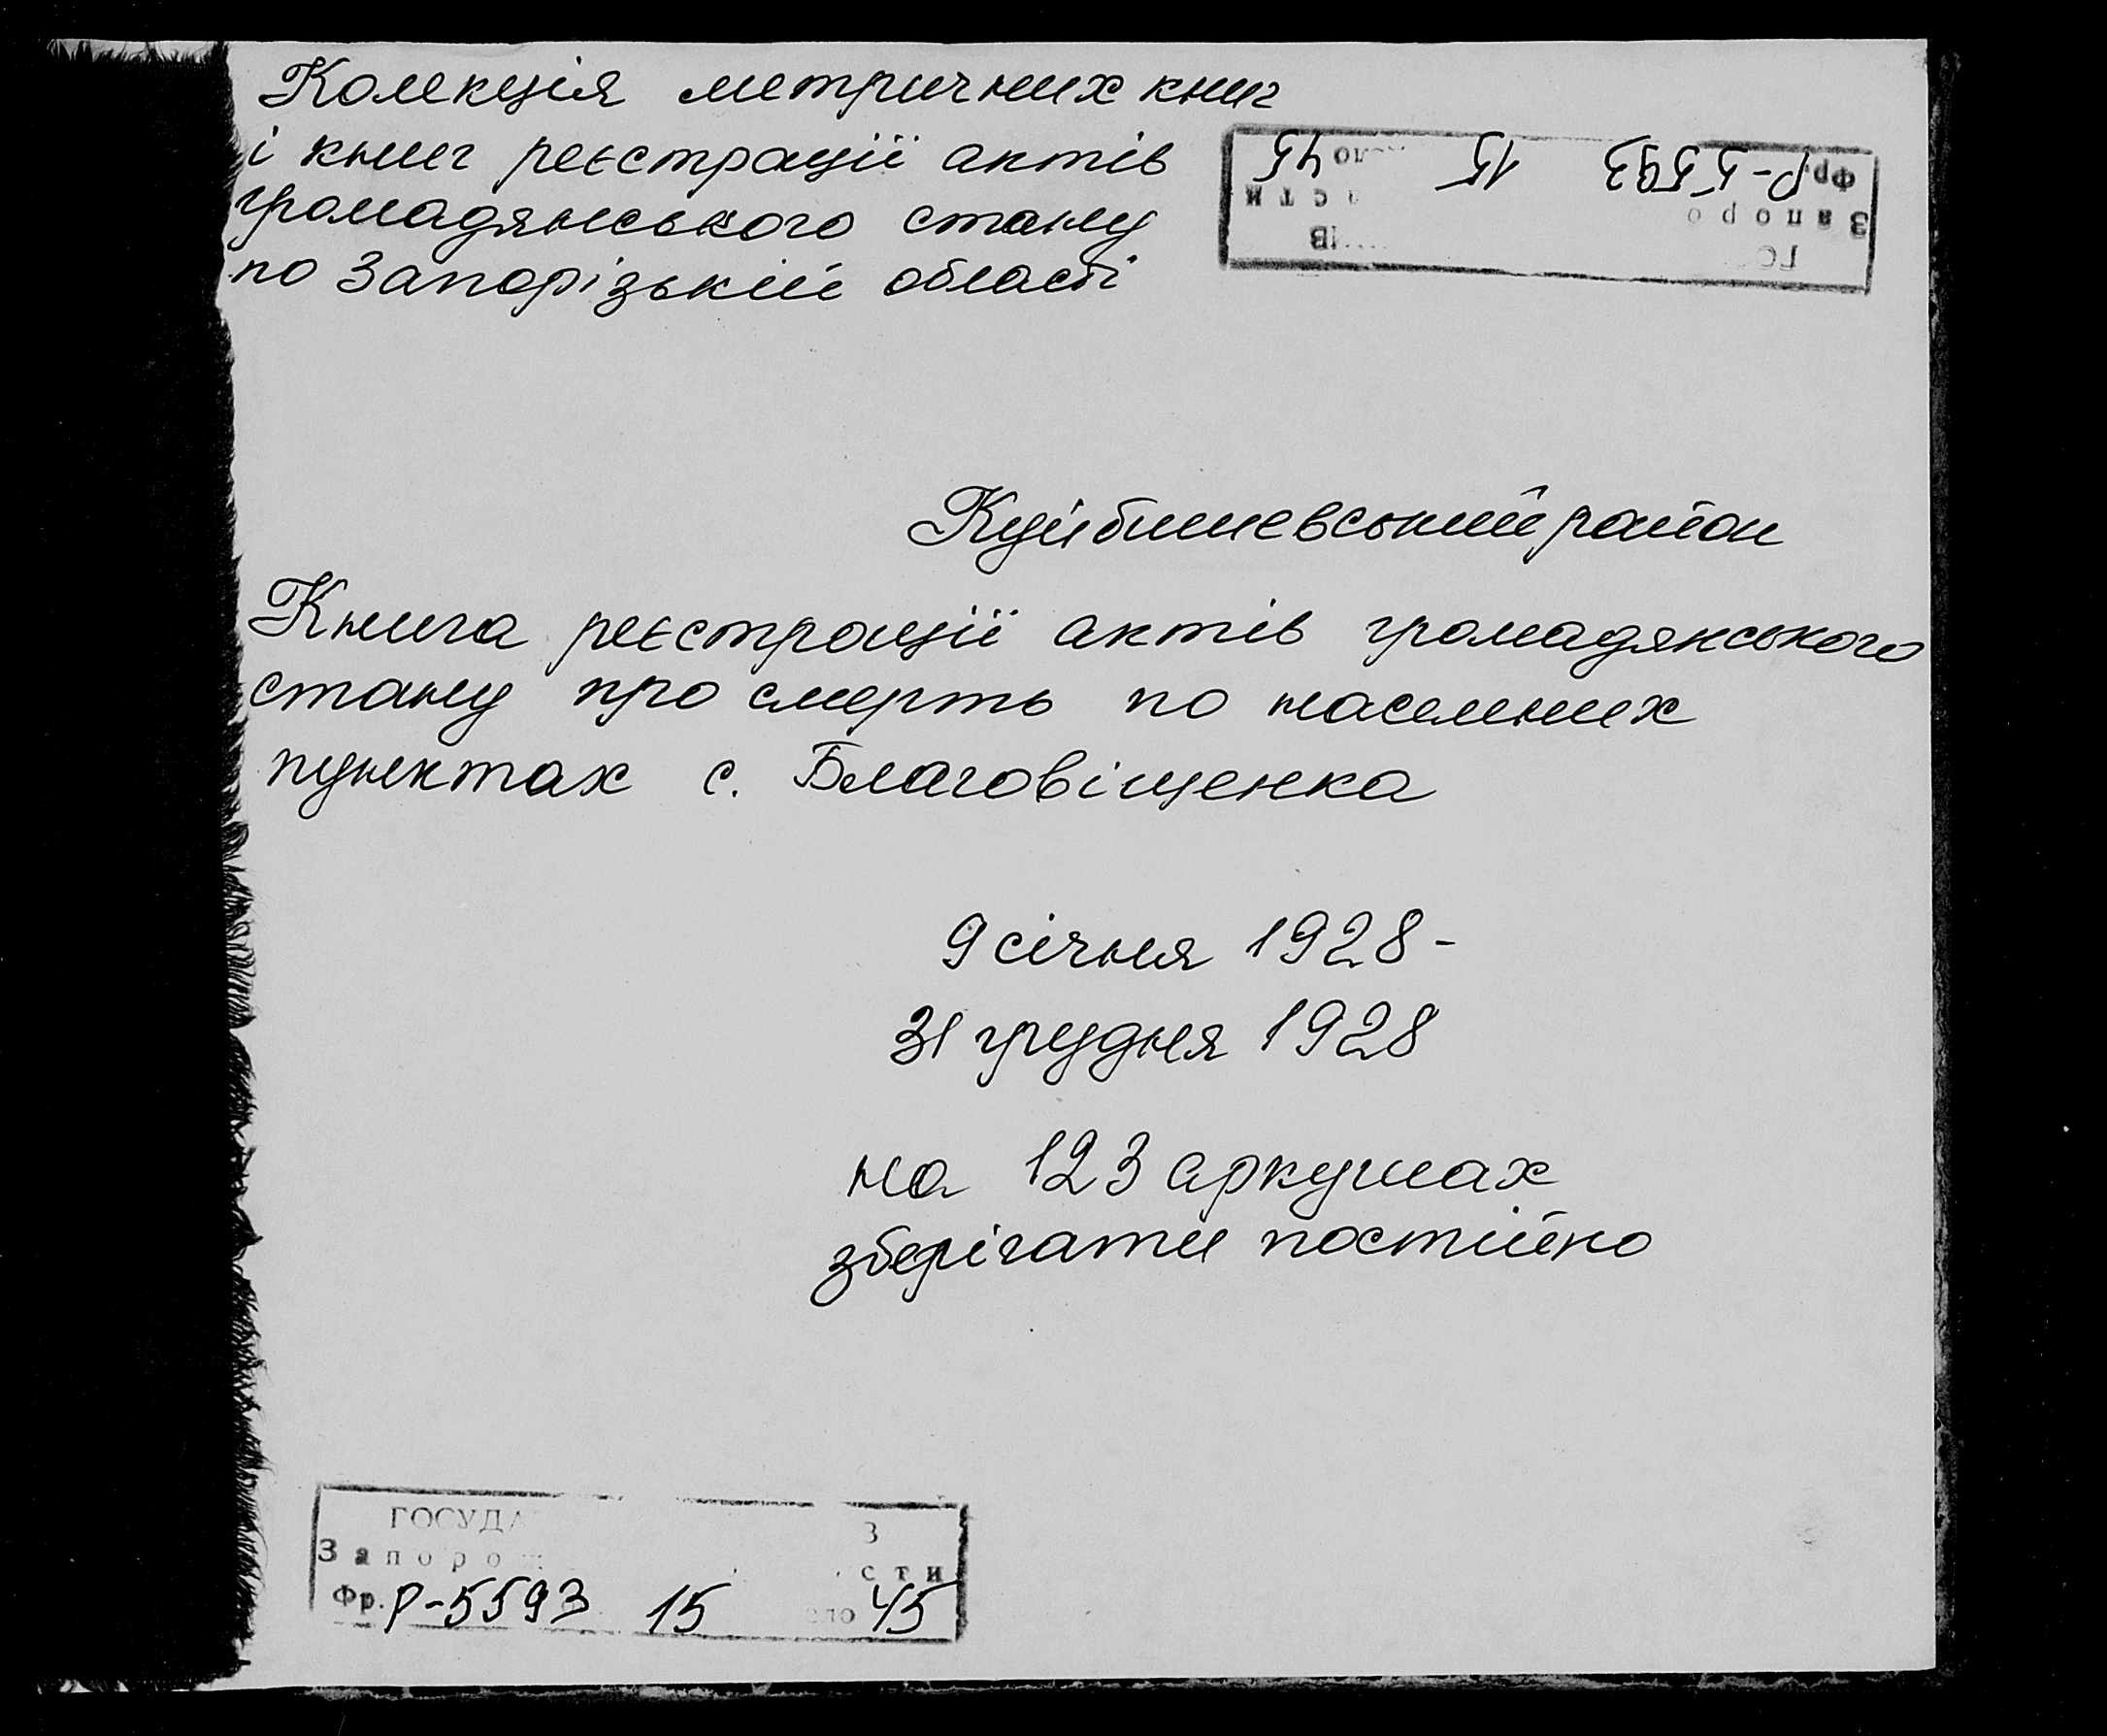 Колекція метричних книг
і книг реєстрації актів
громадянського стану
по Запорізькій області
Фр. Р-5593 15 45
Запоро сти
Куйбишевський район
Книга реєстрації актів громадянського
стану про смерть по населених
пунктах с. Благовіщенка
9 січня 1928-
31 грудня 1928
на 123 аркушах
зберігати постійно
ГОСУДА
Запоро сти
Фр. Р-5593 15 45